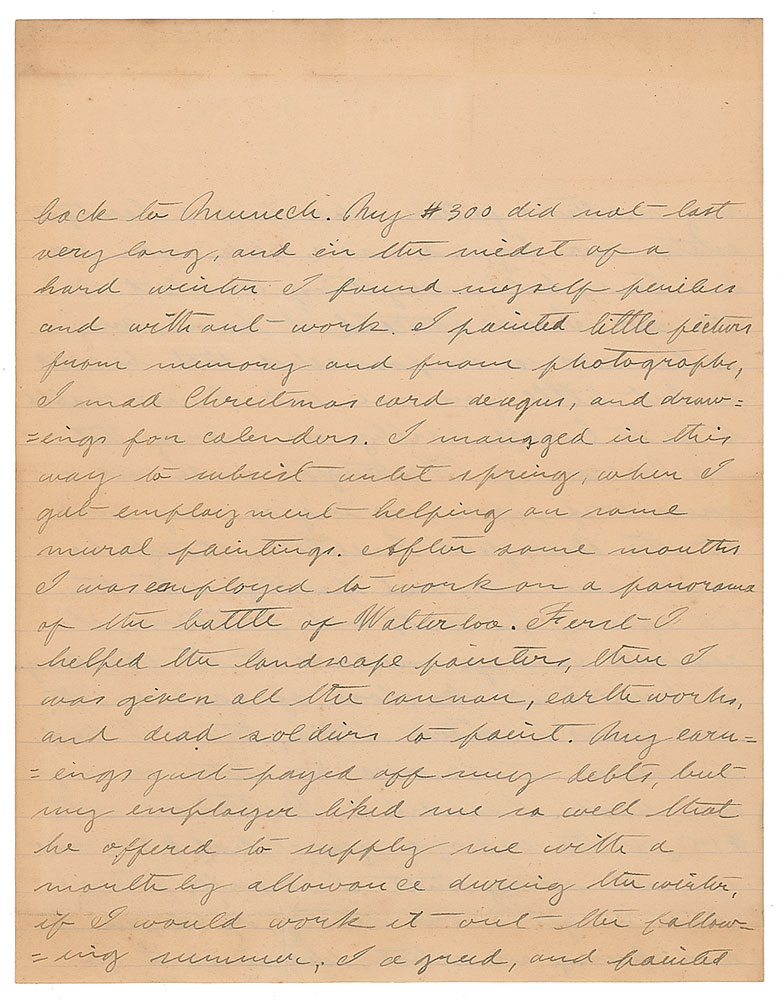 back to Munech. My $300 did not last
very long, and in the midst of a
hard winter I found myself peniless
and without work. I painted little pictures
from memory and from photographs,
I mad Christmas card designs, and draw=
=ings for calenders. I managed in this
way to subsist until spring, when I
got employment helping on some
mural paintings. After some months
I was employed to work on a panorama
of the battle of Watterloo. First I
helped the landscape painters, then I
was given all the cannon, earthworks,
and dead soldiers to paint. My earn=
=ings just payed off my debts, but
my employer liked me so well that
he offered to supply me with a
monthly allowance during the winter,
if I would work it out the follow=
=ing summer. I agreed, and painted